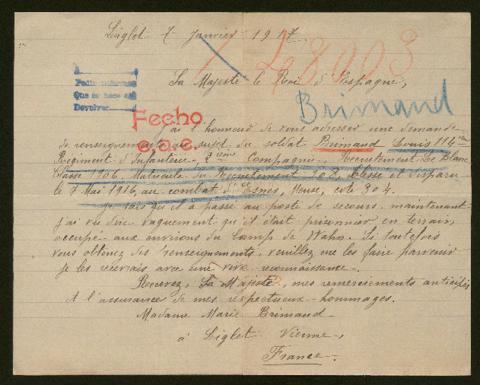 Liglet 7 janvier 1917.
128003
Sa Majesté le Roi d'Espagne,
Brimaud
Devolver
Fecho
J'ai l'honneur de vous adresser une demande
de renseignements au sujet du soldat Brimaud Louis 114ème
Régiment d'Infanterie, 2ème Compagnie, Recrutement Le Blanc
Classe 1906, Matricule du Recrutement blessé et disparu
le 7 Mai 1916, au combat d'Esnes, Meuse, cote 304.
Je sais qu'il a passé au poste de secours, maintenant
j'ai ouï dire vaguement qu'il était prisonnier en terrain
occupé aux environs du Camp de Wahn. Si toutefois
vous obtenez des renseignements, veuillez me les faire parvenir
je les recevrais avec une vive reconnaissance.
Recevez, Sa Majesté, mes remerciements anticipés
et l'assurance de mes respectueux hommages.
Madame Marie Brimaud
à Liglet Vienne,
France.